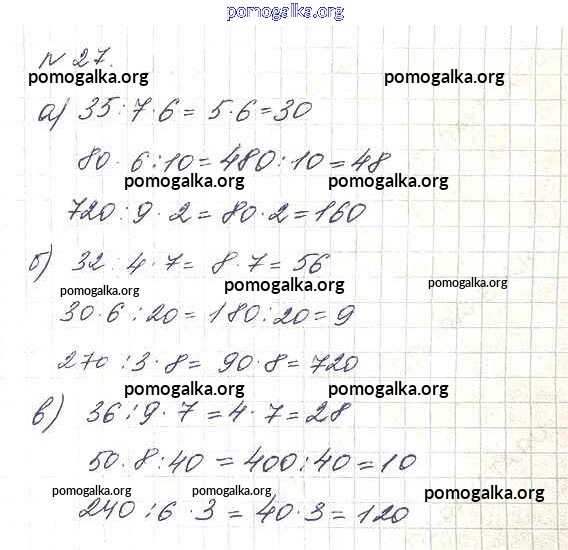 pomogalka.org
№ 27.
pomogalka.org pomogalka.org
а) 35 : 7 · 6 = 5 · 6 = 30
80 · 6 : 10 = 480 : 10 = 48
pomogalka.org pomogalka.org
720 : 9 · 2 = 80 · 2 = 160
б) 32 : 4 · 7 = 8 · 7 = 56
pomogalka.org pomogalka.org pomogalka.org
30 · 6 : 20 = 180 : 20 = 9
270 : 3 · 8 = 90 · 8 = 720
pomogalka.org pomogalka.org
в) 36 : 9 · 7 = 4 · 7 = 28
50 · 8 : 40 = 400 : 40 = 10
pomogalka.org pomogalka.org pomogalka.org
240 : 6 · 3 = 40 · 3 = 120